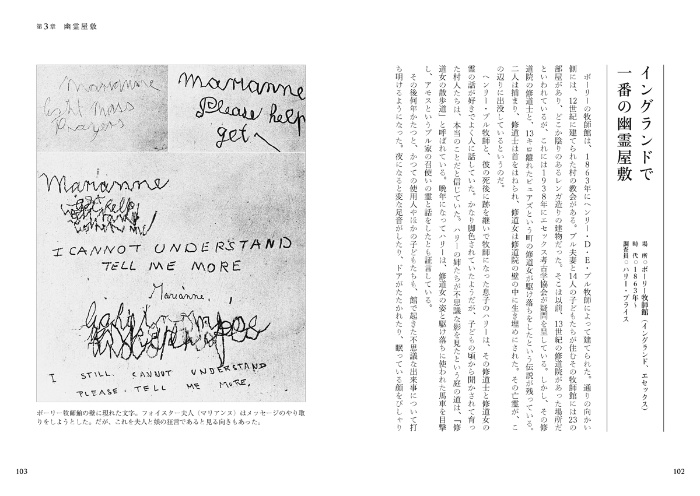 第3章 幽霊屋敷
イングランドで
一番の幽霊屋敷
場 所○ボーリー牧師館（イングランド、エセックス）
時 代○1863年～
調査員○ハリー・プライス
ボーリーの牧師館は、1863年にヘンリー・D・E・ブル牧師によって建てられた。通りの向かい
側には、12世紀に建てられた村の教会がある。ブル夫妻と14人の子どもたちが住むその牧師館には23の
部屋があり、どこか陰りのあるレンガ造りの建物だった。そこは以前、13世紀の修道院があった場所だ
といわれているが、これには1938年にエセックス考古学協会が疑問を呈している。しかし、その修
道院の修道士と、13キロ離れたビュアズという町の修道女が駆け落ちをしたという伝説が残っている。
二人は捕まり、修道士は首をはねられ、修道女は修道院の壁の中に生き埋めにされた。その亡霊が、こ
の辺りに出没しているというのだ。
ヘンリー・ブル牧師と、彼の死後に跡を継いで牧師になった息子のハリーは、その修道士と修道女の
霊の話が好きでよく人に話していた。かなり脚色されていたようだが、子どもの頃から聞かされて育っ
た村人たちは、本当のことだと信じていた。ハリーの姉たちが不思議な影を見たという庭の道は、「修
道女の散歩道」と呼ばれている。晩年になってハリーは、修道女の姿と駆け落ちに使われた馬車を目撃
し、アモスというブル家の召使いの霊と話をしたとも証言している。
その後何年かたつと、かつての使用人やほかの子どもたちも、館で起きた不思議な出来事について打
ち明けるようになった。夜になると変な足音がしたり、ドアがたたかれたり、眠っている顔をぴしゃり
102
Marianne
light mass
prayers
Marianne
Please help
get
Marianne
get help
I CANNOT UNDERSTAND
TELL ME MORE
Marianne,
I STILL CANNOT UNDERSTAND
PLEASE TELL ME MORE,
ボーリー牧師館の壁に現れた文字。フォイスター夫人（マリアンヌ）はメッセージのやり取
りをしようとした。だが、これを夫人と娘の狂言であると見る向きもあった。
103